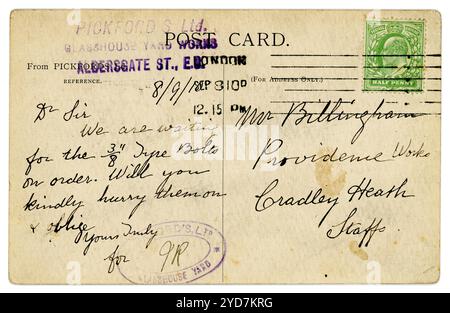 PICKFORD'S Ltd.
GLASSHOUSE YARD WORKS
ALDERSGATE ST., E.C.
POST CARD.
From PICKFORDS
REFERENCE.
(FOR ADDRESS ONLY.)
LONDON
SEP 8 10
12.15 PM
HALF PENNY
8/9/10
Dr Sir
We are waiting
for the 3/8" Type Bolts
on order. Will you
kindly hurry them on
& oblige
Yours Truly
for
Mr Billingham
Providence Works
Cradley Heath
Staffs.
GLASSHOUSE YARD
alamy
Image ID: 2YD7KRG
www.alamy.com